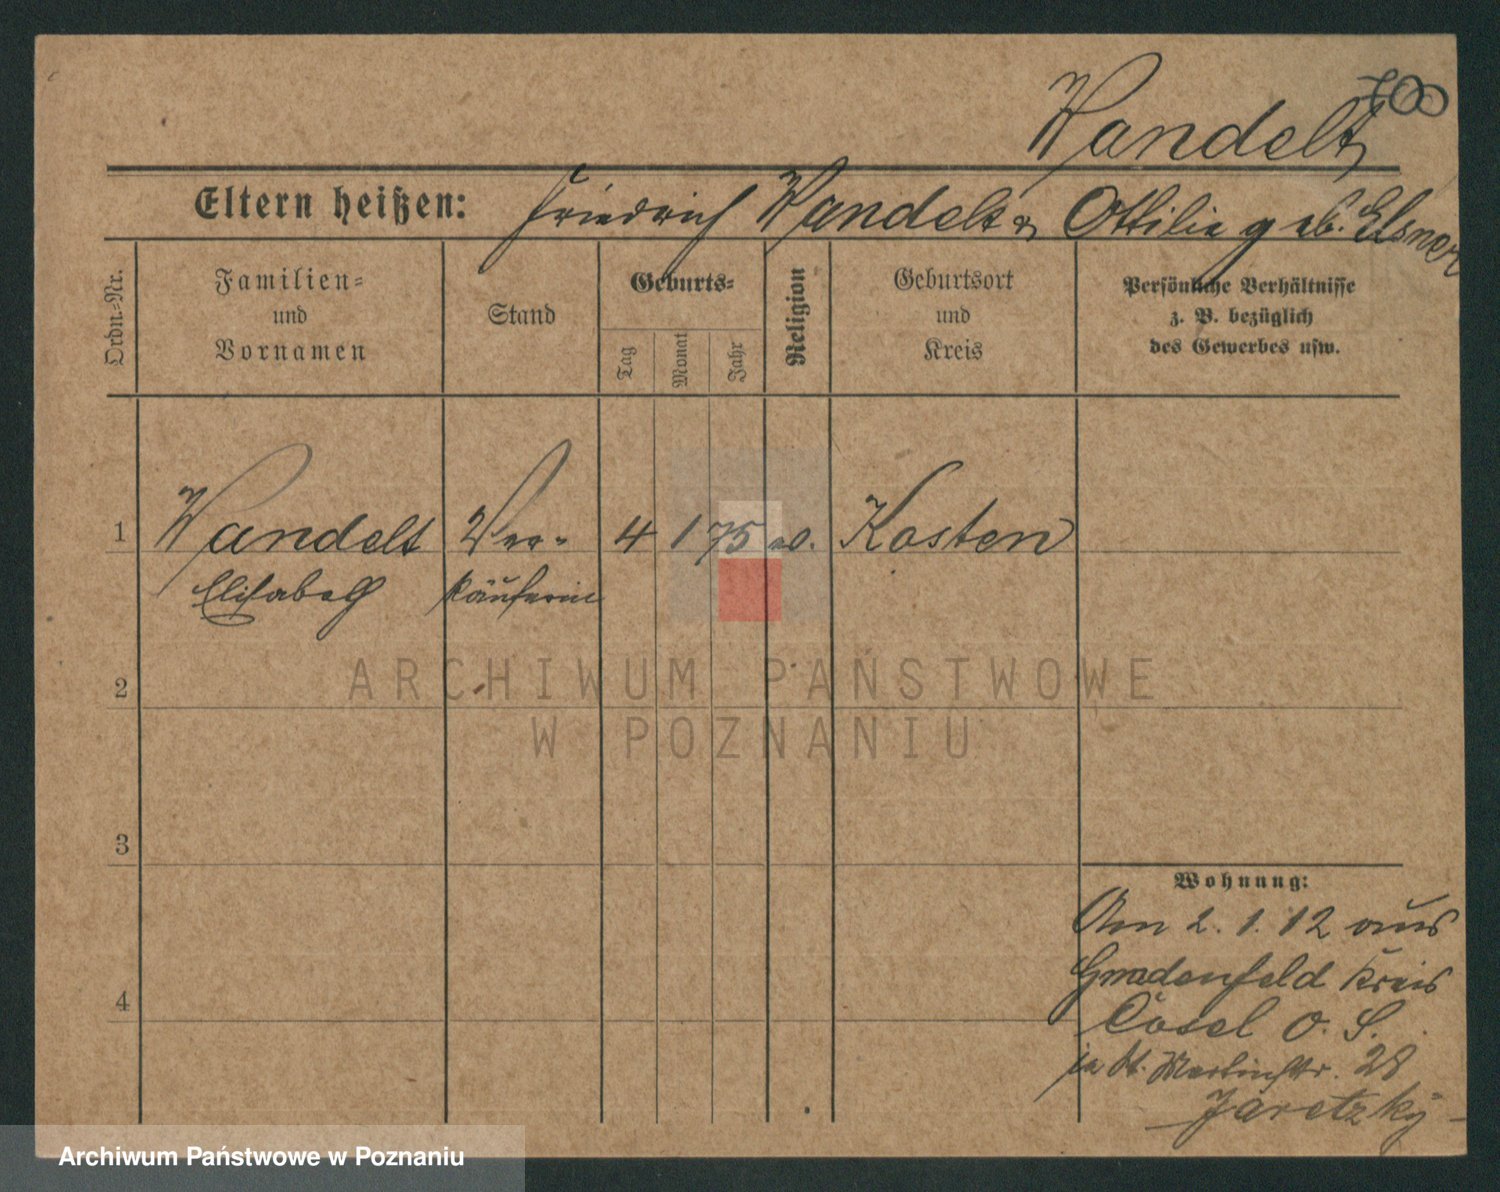 700
Wandelt
Eltern heißen: Friedrich Wandelt & Ottilie geb. Elsner
Ordn.-Nr.
Familien-
und
Vornamen
Stand
Geburts-
Tag
Monat
Jahr
Religion
Geburtsort
und
Kreis
Persönliche Verhältnisse
z. B. bezüglich
des Gewerbes usw.
1 Wandelt Ver- 4 1 75 ev. Kosten
Elisabeth käuferin
2
3
4
Wohnung:
Am 2. 1. 12 aus
Gnadenfeld Kreis
Cosel O. S.
in St. Martinstr. 28
Jaretzky
ARCHIWUM PAŃSTWOWE
W POZNANIU
Archiwum Państwowe w Poznaniu